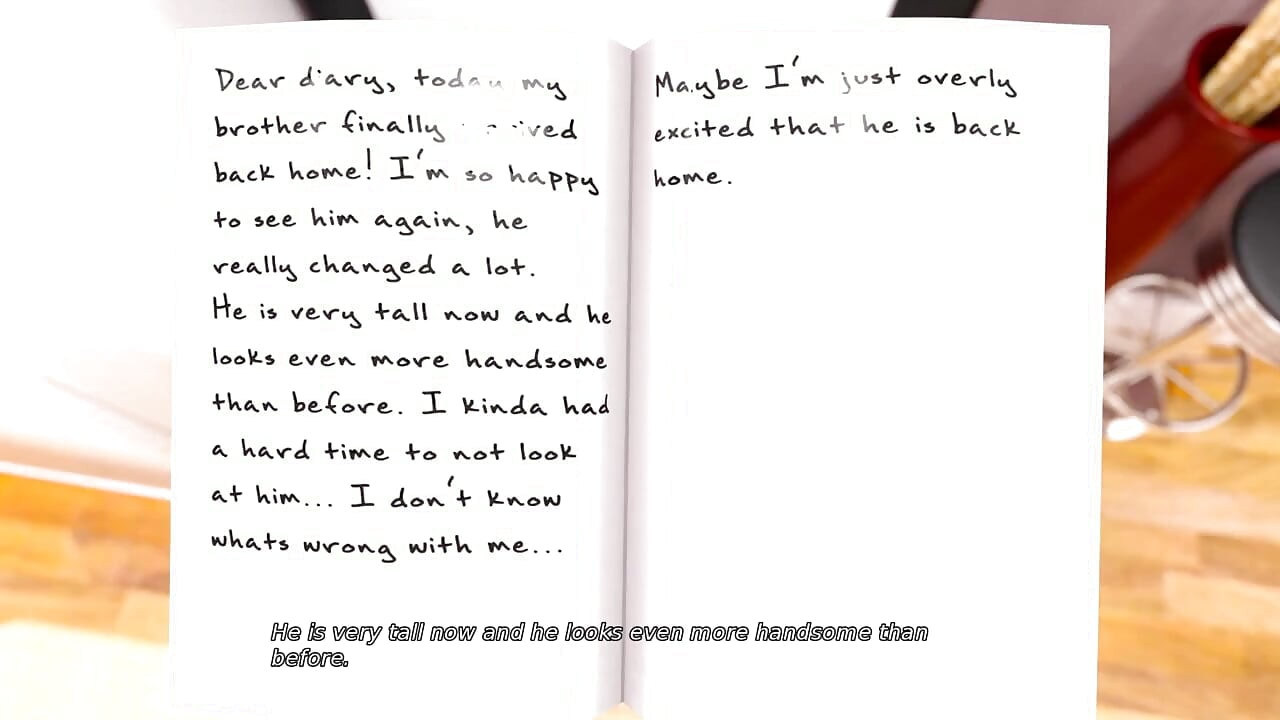 Dear diary, today my
brother finally
back home! I'm so happy
to see him again, he
really changed a lot.
He is very tall now and he
looks even more handsome
than before. I kinda had
a hard time to not look
at him... I don't know
whats wrong with me...
Maybe I'm just overly
excited that he is back
home.
He is very tall now and he looks even more handsome than
before.